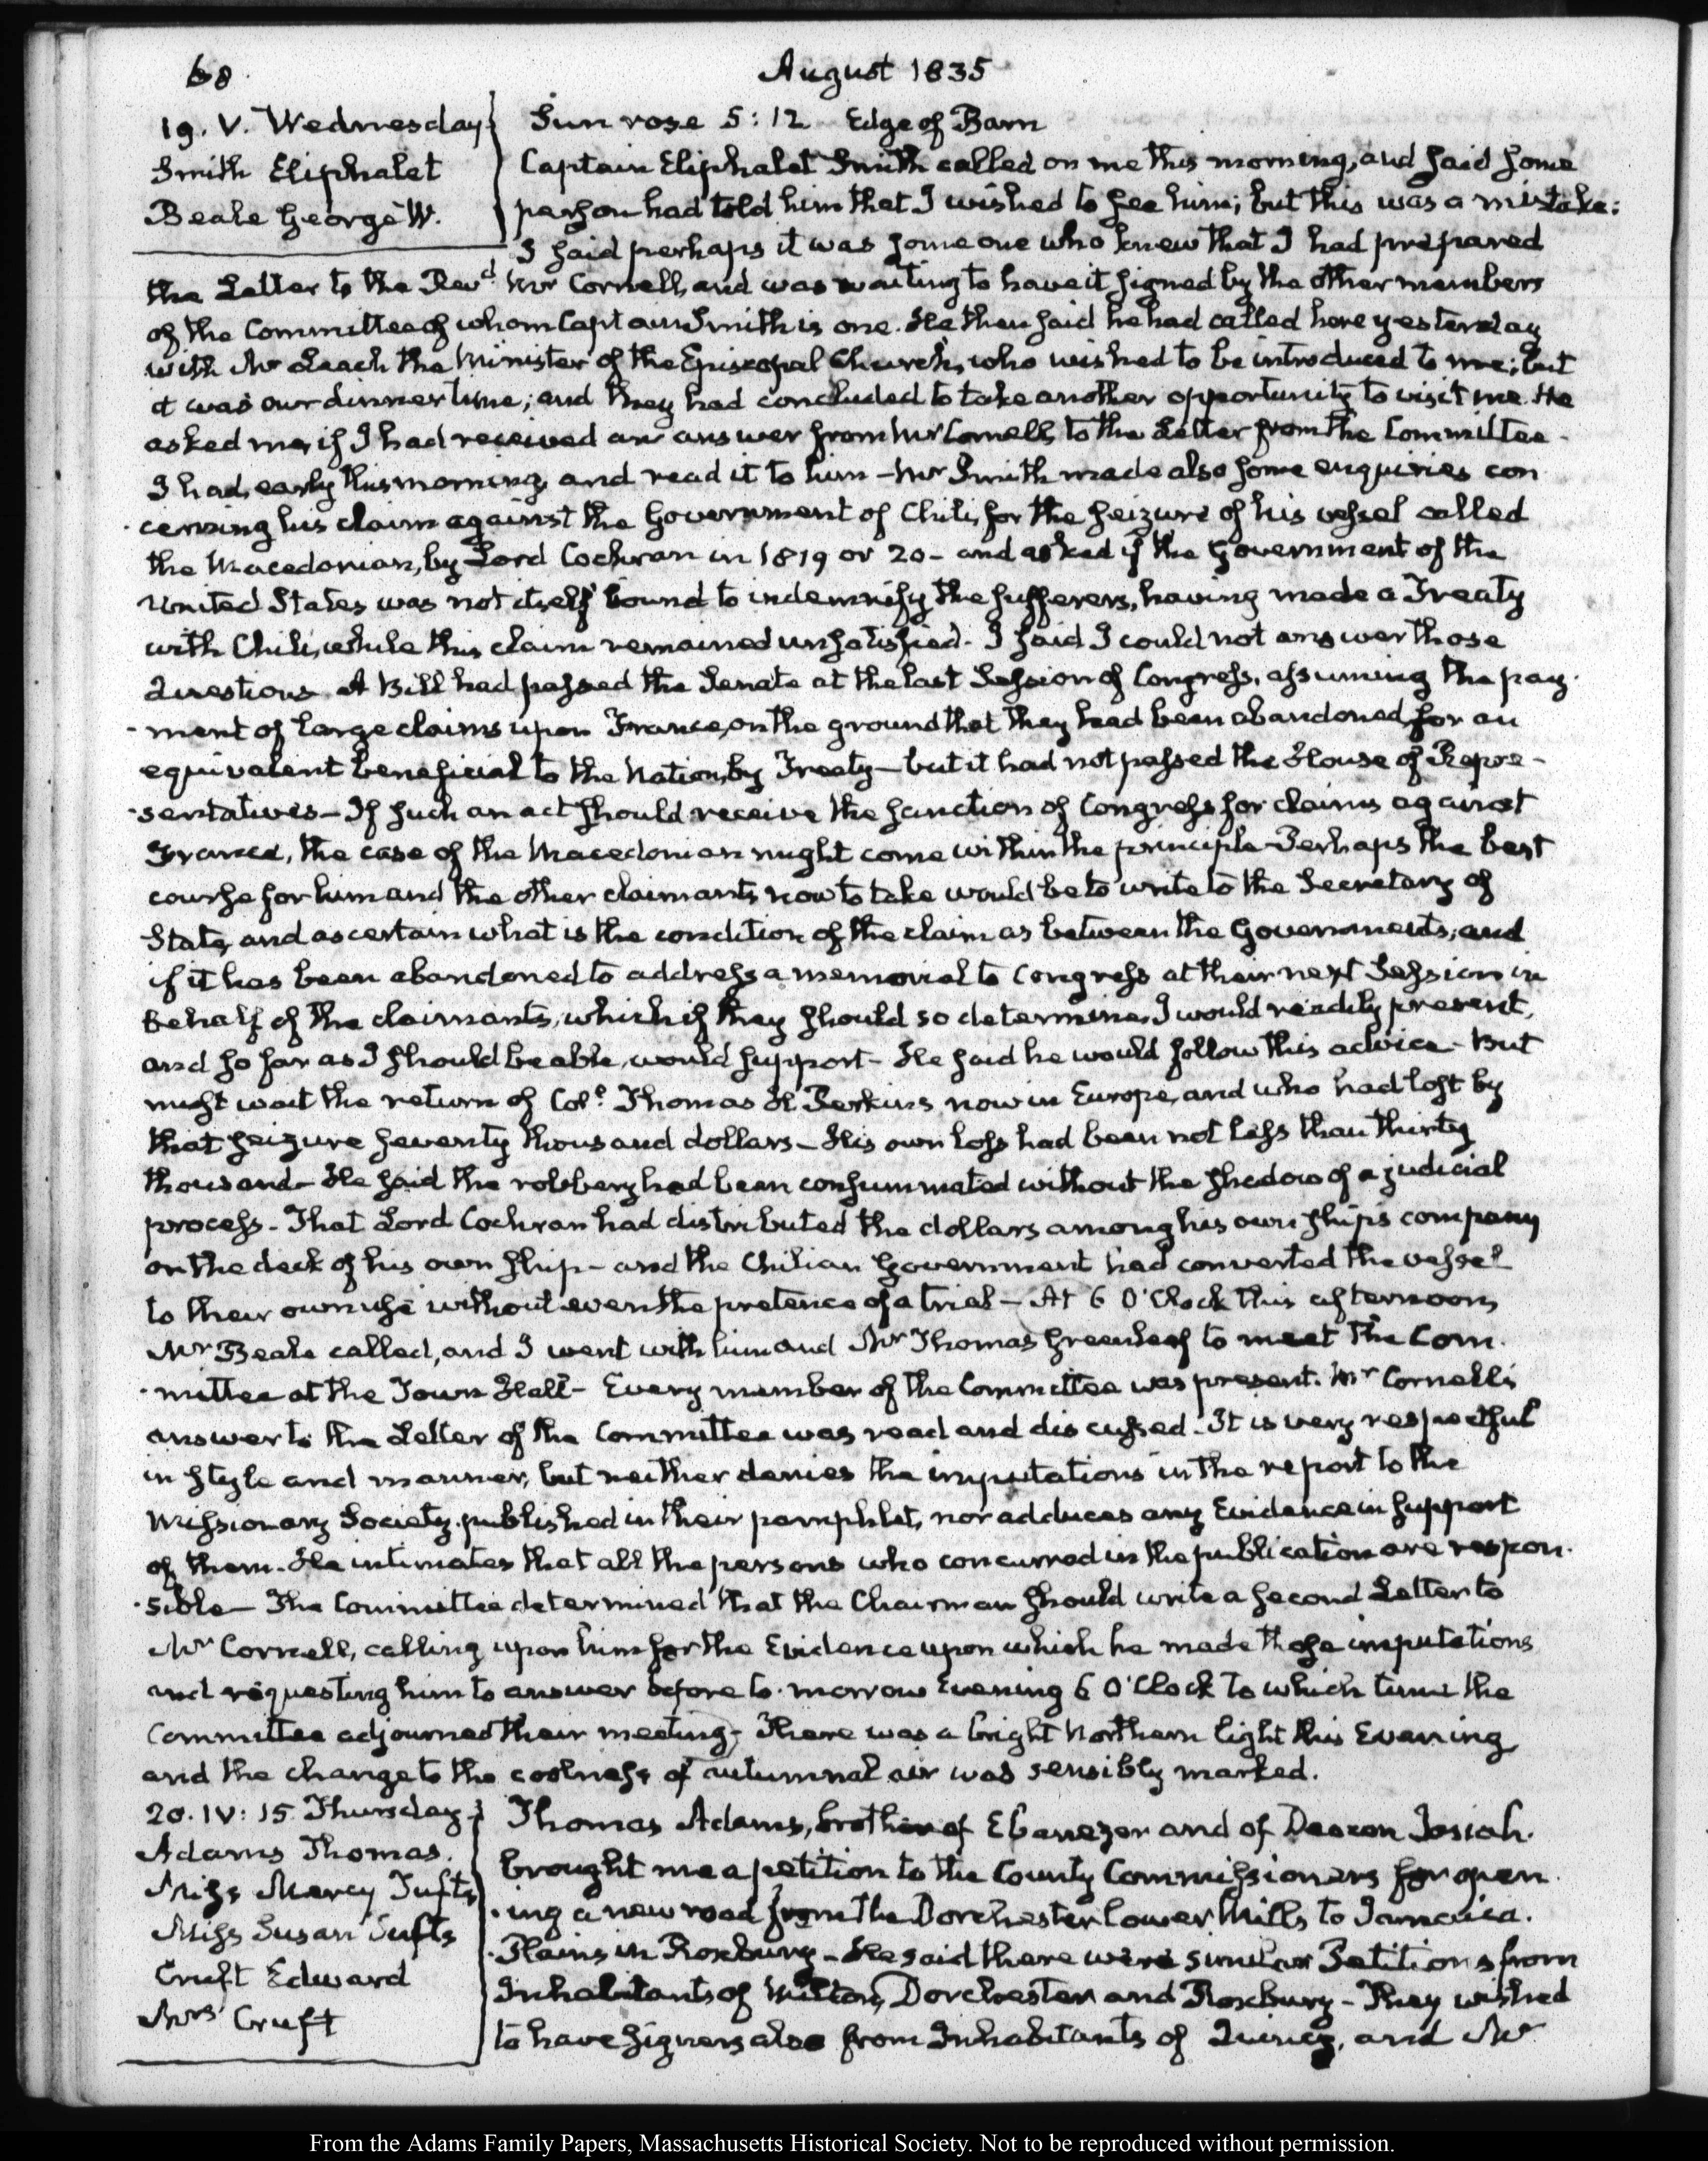 68
August 1835
19. V. Wednesday
Smith Eliphalet
Beale George W.
Sun rose 5:12 Edge of Barn
Captain Eliphalet Smith called on me this morning, and said some
person had told him that I wished to see him; but this was a mistake:
I said perhaps it was some one who knew that I had prepared
the Letter to the Revd Mr Cornell, and was waiting to have it signed by the other members
of the Committee of whom Captain Smith is one. He then said he had called here yesterday
with Mr Leach the Minister of the Episcopal Church, who wished to be introduced to me; but
it was our dinner time; and they had concluded to take another opportunity to visit me. He
asked me, if I had received an answer from Mr Cornell, to the Letter from the Committee-
I had, early this morning, and read it to him - Mr Smith made also some enquiries con
cerning his claim against the Government of Chili, for the seizure of his vessel called
the Macedonian, by Lord Cochran in 1819 or 20- and asked if the Government of the
United States was not itself bound to indemnify the sufferers, having made a Treaty
with Chili, while this claim remained unsatisfied. I said I could not answer those
Questions. A Bill had passed the Senate at the last Session of Congress, assuming the pay-
-ment of large claims upon France, on the ground that they had been abandoned, for an
equivalent beneficial to the Nation, by Treaty - but it had not passed the House of Repre-
-sentatives - If such an act should receive the sanction of Congress for claims against
France, the case of the Macedonian might come within the principle - Perhaps the best
course for him and the other claimants now to take would be to write to the Secretary of
State, and ascertain what is the condition of the claim as between the Governments; and
if it has been abandoned to address a memorial to Congress at their next Session in
behalf of the claimants, which if they should so determine, I would readily present,
and so far as I should be able, would support - He said he would follow this advice - But
must wait the return of Coll Thomas H Perkins, now in Europe, and who had lost by
that seizure seventy thousand dollars - His own loss had been not less than thirty
thousand - He said the robbery had been consummated without the shadow of a judicial
process - That Lord Cochran had distributed the dollars among his own ship's company
on the deck of his own ship - and the Chilian Government had converted the vessel
to their own use without even the pretence of a trial - At 6 O'Clock this afternoon,
Mr Beale called, and I went with him and Mr Thomas Greenleaf to meet the Com-
-mittee at the Town Hall - Every member of the Committee was present. Mr Cornell's
answer to the Letter of the Committee was read and discussed. It is very respectful
in style and manner, but neither denies the imputations in the report to the
Missionary Society published in their pamphlet, nor adduces any Evidence in support
of them. He intimates that all the persons who concurred in the publication are respon-
-sible - The Committee determined that the Chairman should write a second Letter to
Mr Cornell, calling upon him for the Evidence upon which he made those imputations
and requesting him to answer before to-morrow Evening 6 O'Clock to which time the
Committee adjourned their meeting - There was a bright Northern light this Evening
and the change to the coolness of autumnal air was sensibly marked.
20. IV: 15 Thursday
Adams Thomas.
Miss Mercy Tufts
Miss Susan Tufts
Cruft Edward
Mrs Cruft
Thomas Adams, brother of Ebenezer and of Deacon Josiah.
brought me a petition to the County Commissioners for open-
-ing a new road from the Dorchester lower Mills to Jamaica.
Plains in Roxbury - He said there were similar Petitions from
Inhabitants of Milton, Dorchester and Roxbury - They wished
to have signers also from Inhabitants of Quincy, and Mr
From the Adams Family Papers, Massachusetts Historical Society. Not to be reproduced without permission.